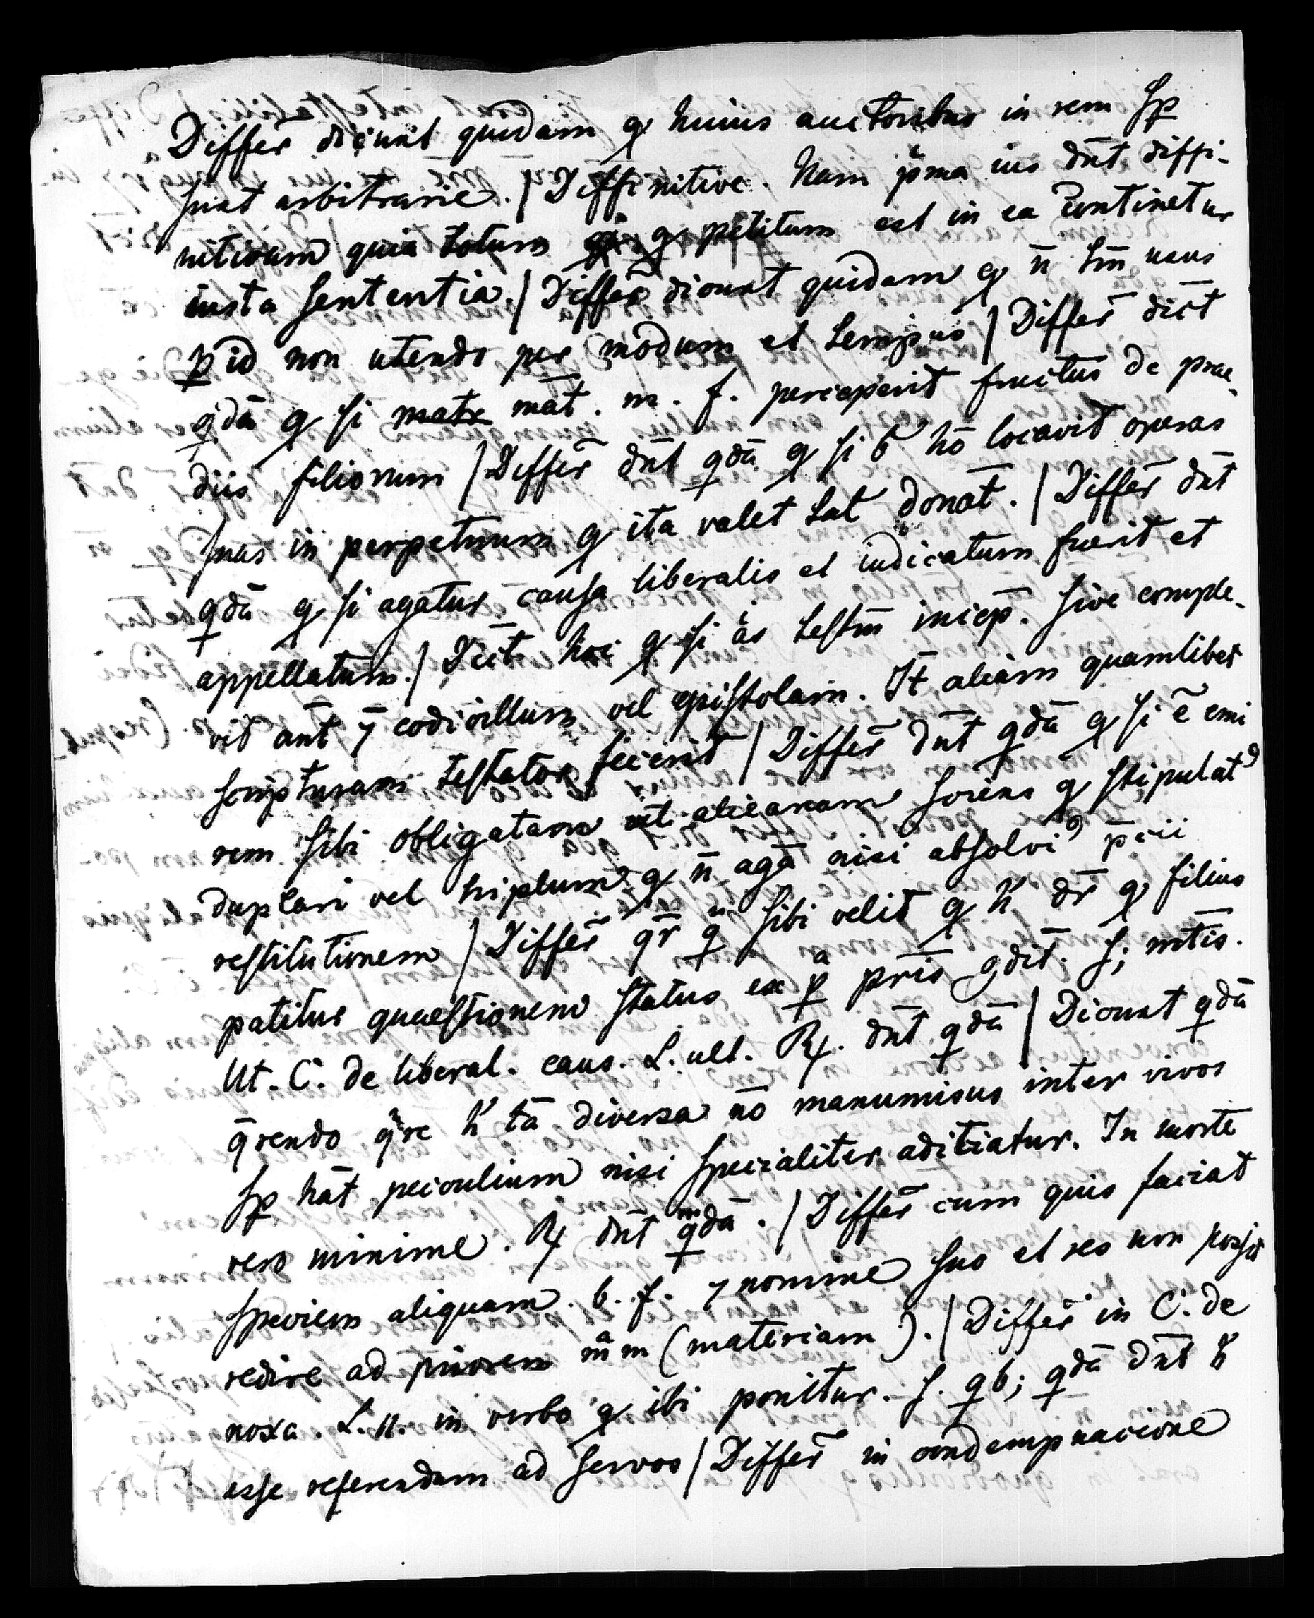 Differ̄ dicunt quidam q huius auctoribus in rem sp
sunt arbitrarie. / Diffinitive. Nam p̄ma ius dn̄t diffi-
nitivam quia totum q petitum est in ea continetur
iusta sententia. / Differ̄ dicunt quidam q n̄ tm̄ usus
p id non utendo per modum et tempus / Differ̄ dic̄t
qdā q si matr māt. m. f. perceperit fructus de prae-
diis filiorum / Differ̄ dn̄t qdā q si b hō locavit operas
suas in perpetuum q ita valet tat donat̄. / Differ̄ dn̄t
qdā q si agatur causa liberalis et iudicatum fuerit et
appellatum. / Dic̄t hoc q si as testm̄ incep̄. sive comple-
vit an̄t 7 codicillum vel epistolam. It̄ aliam quamlibet
scripturam testator fecerit / Differ̄ dn̄t qdā q si ē emi
rem sibi obligatam vt alienam sciens q stipulat9
duplam vel triplum q n̄ agā nisi absolvi9 p̄cii
restitutionem / Differ̄ qr̄ q sibi velit q h' dr̄ q filius
patitur quaestionem status ex p prīs gdit. s; mt̄is.
Ut. C. de liberal. caus. L. ult. R. dn̄t qdā / Dicunt qdā
q̄rendo q̄re h' tā diversa nō manumisus inter vivos
sp hāt peculium nisi specialiter aditiatur. In morte
vero minime. R dn̄t qdā. / Differ̄ cum quis faciat
speciem aliquam b. f. 7 nomine suo et res non possit
redire ad priorem mām (materiam). / Differ̄ in C. de
noxa. L. 11. in verbo q ibi ponitur. s. qb; qdā dn̄t
esse referendum ad servos / Differ̄ in condempnacione